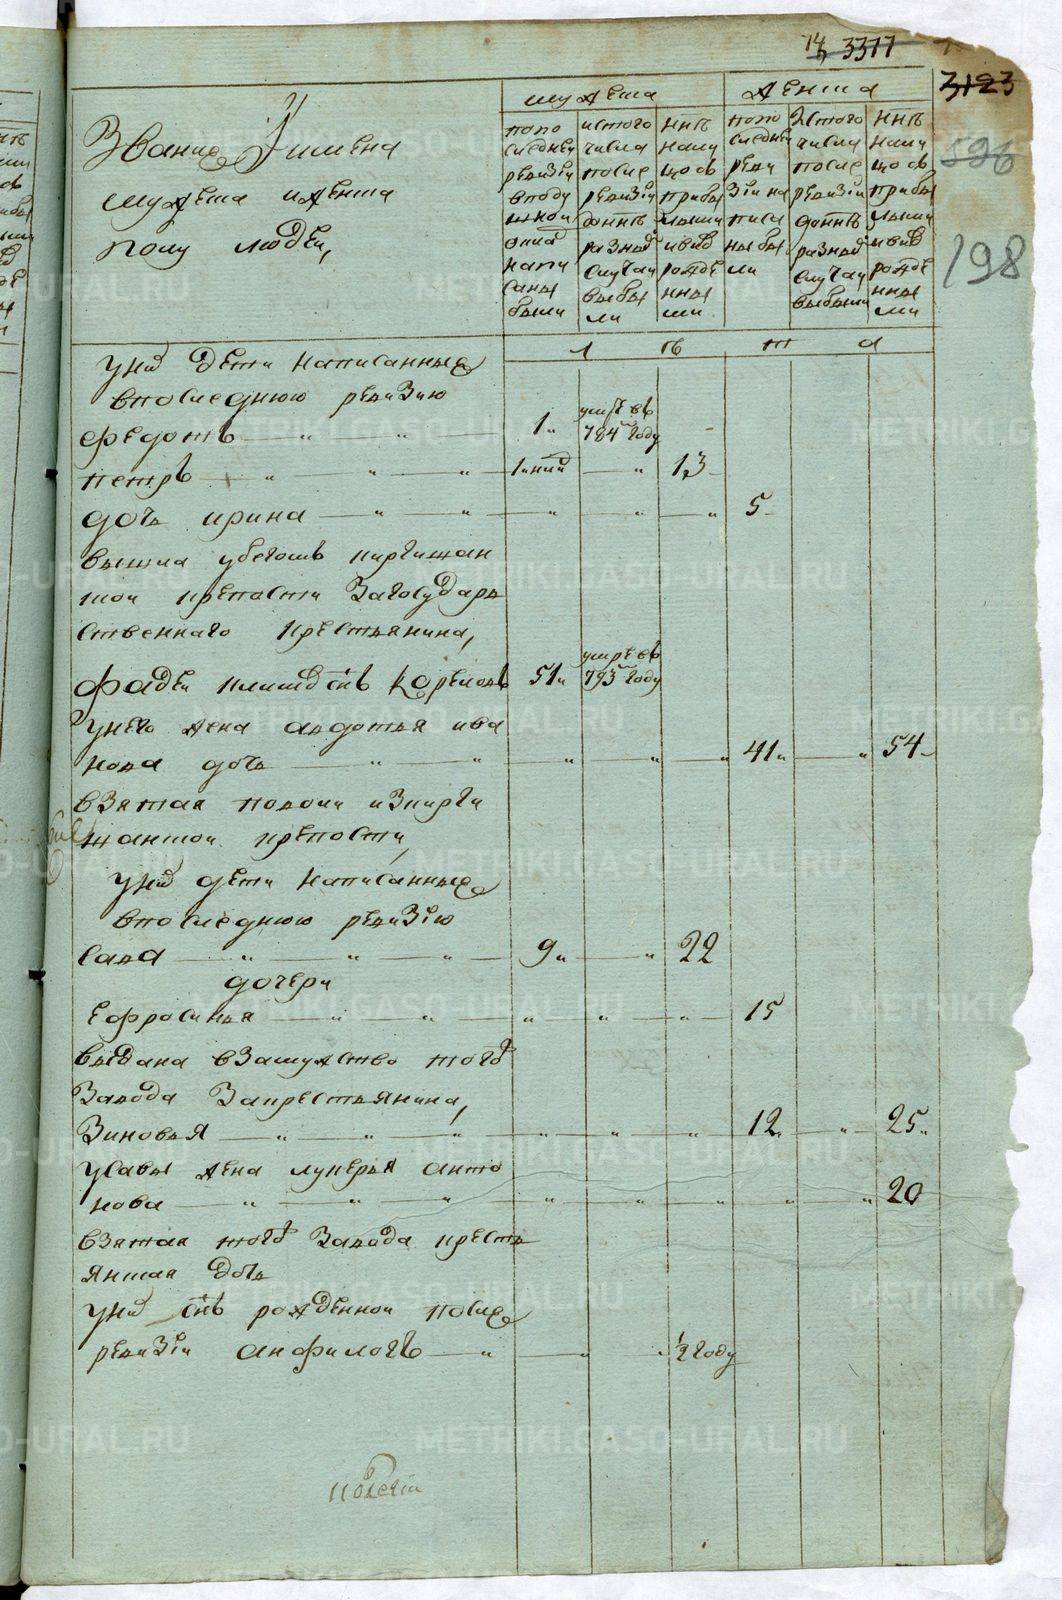 3377
3123
596
198
Звание имена
мужеска иженска
полу людеи,
мужеска
женска
попо
следнеи
ревизіи
вподу
шнои
окла
напи
саны
были
истого
числа
после
ревизіи
донне
разныя
случаи
выбы
ли
ннѣ
нали
цо съ
прибы
лыми
ивнов
рожде
нны
ми
попо
следнеи
реви
зіи на
писа
ны бы
ли
Зстого
числа
после
ревизіи
донне
разныя
случаи
выбыли
ннѣ
нали
цо съ
прибы
лыми
ивнов
рожде
нны
ми
л ѣ т а
уних дети написанныя
впоследнюю ревизию
Федотъ " " 1 " умре въ 784м году -
петръ " " 1 " 13
дочь ирина " " " " " 5
вышла киргишан
скои крепости Загосудар
ственнаго крестьянина,
Фадеи снъ Кореловъ 51 " умре въ 793м году
унего жена авдотья ива
нова дочь " " " " " 41 " " 54
взятая изкирги
шанскои крепости,
уних дети написанныя
впоследнюю ревизію
Сава " " " 9 " " 22
дочери
ефросинья " " " " " 15
выдана взамужство тогож
Завода Закрестьянина,
Зиновья " " " " " " 12 " 25
усавы жена лукерья анто
нова " " " " " " " " 20
взятая тогож Завода кресть
янская дочь
уних снъ рожденнои после
ревизіи анфилогъ " " " 1/2 году